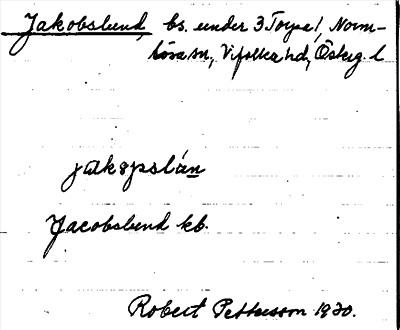 Jakobslund, bs. under 3 Torpa /, Norrn-
lösa sn, Vifolka hd, Österg. l
jakɵpslán
Jacobslund kb.
Robert Pettersson 1930.